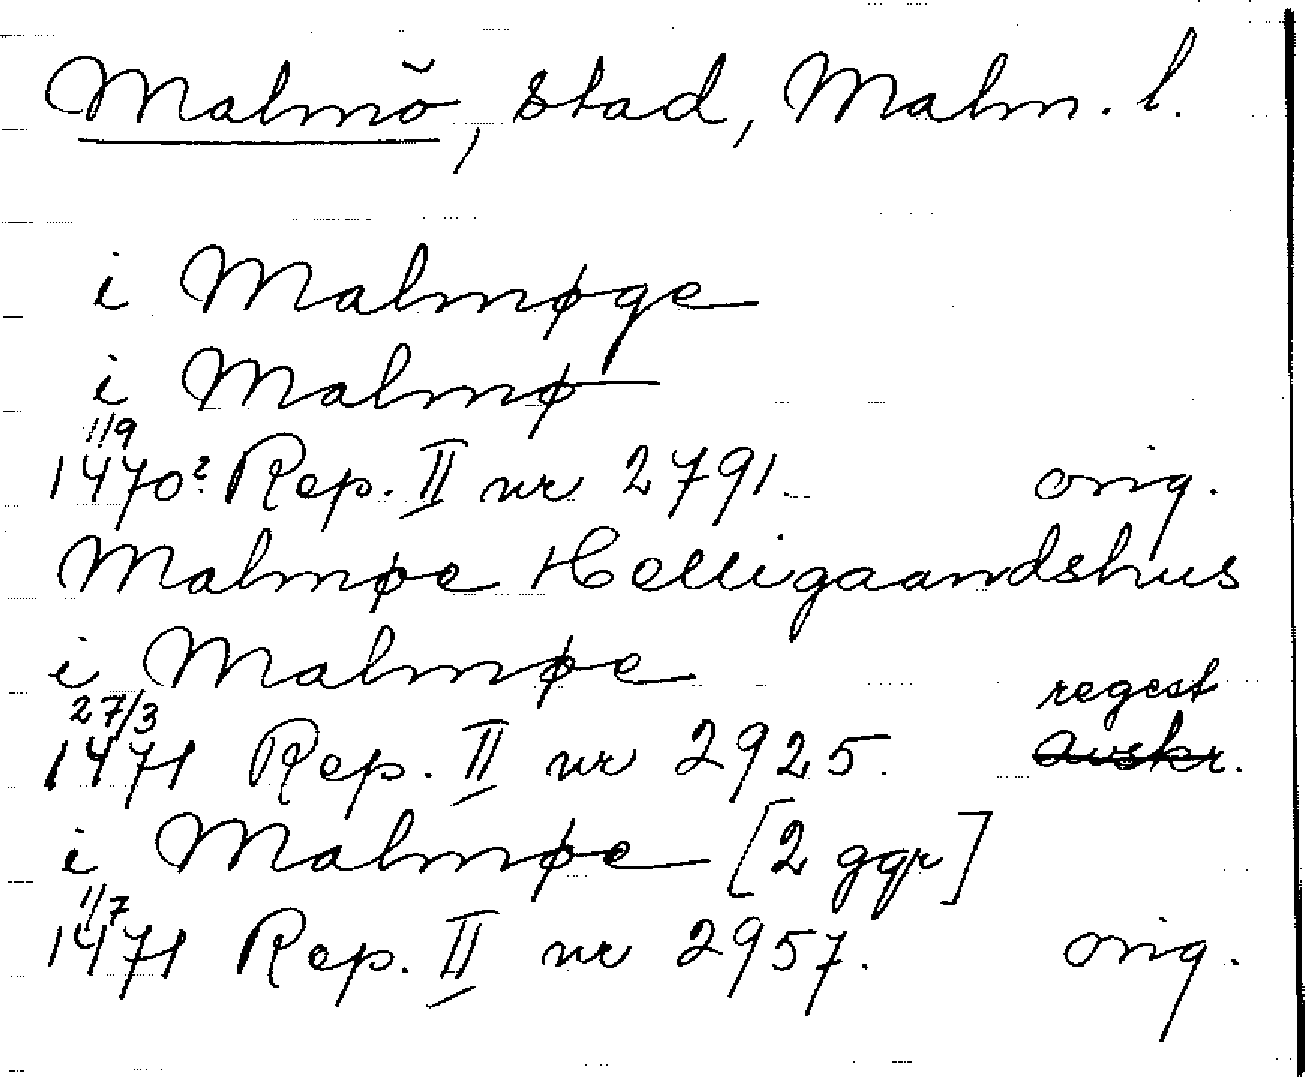 Malmö, stad, Malm. l.
i Malmøge
i Malmø
1/9
1470? Rep. II nr 2791. orig.
Malmøe Helligaandshus
i Malmøe
27/3 regest
1471 Rep. II nr 2925. avskr.
i Malmøe [2 ggr]
1/7
1471 Rep. II nr 2957. orig.